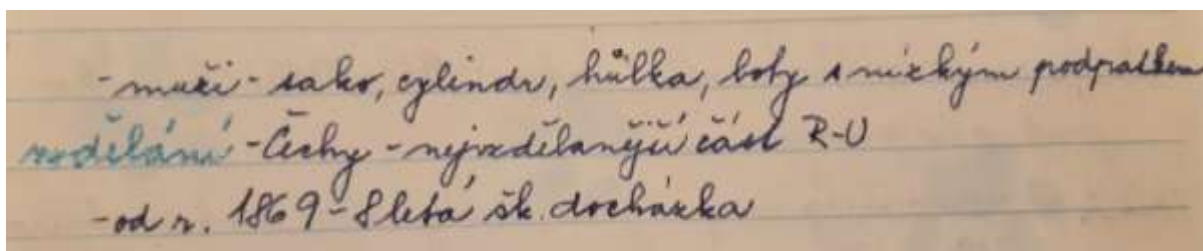 - muži - sako, cylindr, hůlka, boty s nízkým podpatkem
vzdělání - Čechy - nejvzdělanější část R-U
- od r. 1869 - 8letá šk. docházka